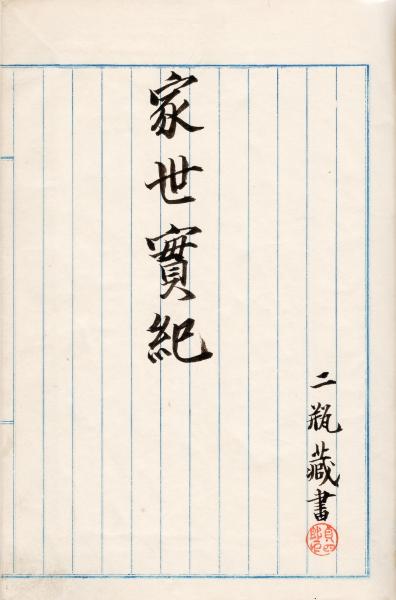 家世實紀
二瓶藏書